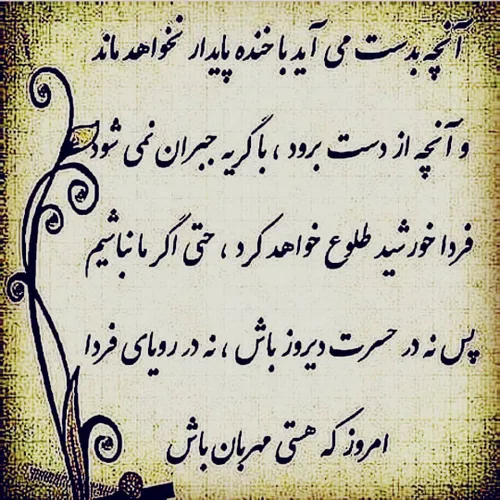 آنچه بدست می آید با خنده پایدار نخواهد ماند
و آنچه از دست برود ، با گریه جبران نمی شود
فردا خورشید طلوع خواهد کرد ، حتی اگر ما نباشیم
پس نه در حسرت دیروز باش ، نه در رویای فردا
امروز که هستی مهربان باش